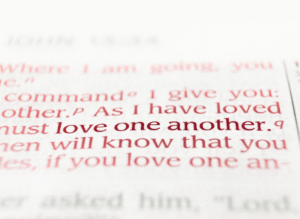 JOHN 13:34
Where I am going, you
e.ⁿ
command° I give you:
other.ᵖ As I have loved
must love one another.q
men will know that you
les, if you love one an-
er asked him, "Lord